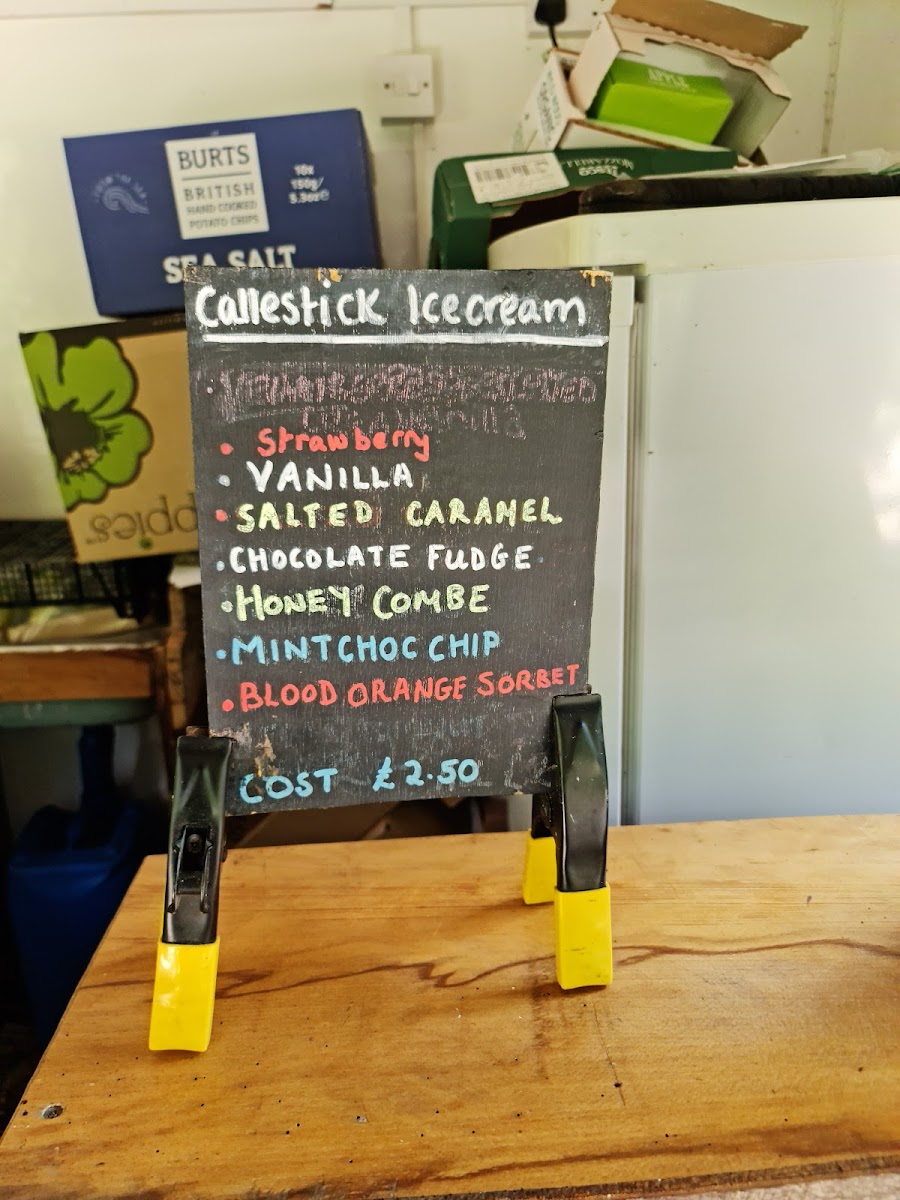 APPLE
BURTS
BRITISH
HAND COOKED
POTATO CHIPS
10x
150g/
5.3oz e
SEA SALT
Callestick Icecream
• Strawberry
• VANILLA
• SALTED CARAMEL
• CHOCOLATE FUDGE
• HONEY COMBE
• MINTCHOC CHIP
• BLOOD ORANGE SORBET
COST £2.50